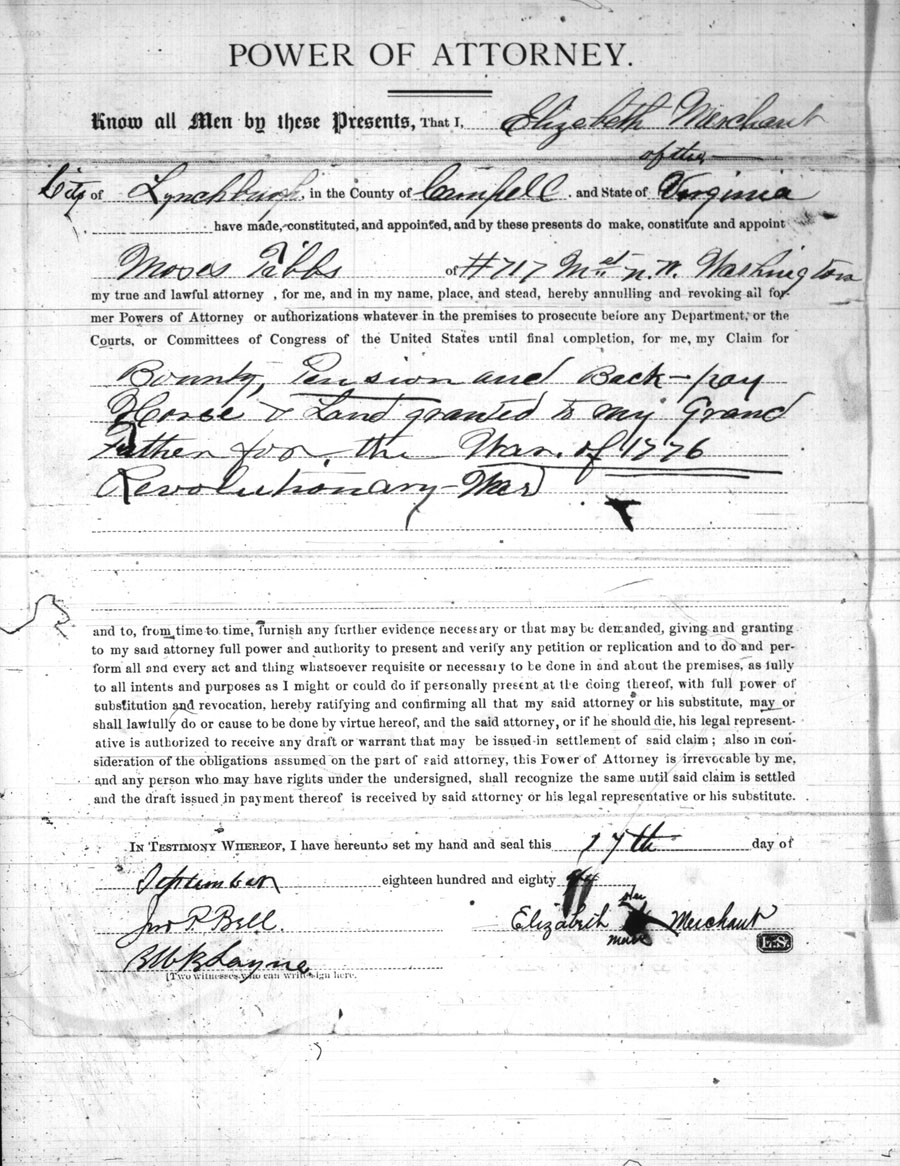 POWER OF ATTORNEY.
Know all Men by these Presents, That I, Elizabeth Merchant
of the
City of Lynchburg, in the County of Campell. and State of Virginia
have made, constituted, and appointed, and by these presents do make, constitute and appoint
Moses Tibbs of #717 Mst N.W. Washington
my true and lawful attorney , for me, and in my name, place, and stead, hereby annulling and revoking all for-
mer Powers of Attorney or authorizations whatever in the premises to prosecute before any Department, or the
Courts, or Committees of Congress of the United States until final completion, for me, my Claim for
Bounty, Pension and Back-pay
Horse & Land granted to my Grand
Father for the War. of 1776
Revolutionary-War
and to, from time to time, furnish any further evidence necessary or that may be demanded, giving and granting
to my said attorney full power and authority to present and verify any petition or replication and to do and per-
form all and every act and thing whatsoever requisite or necessary to be done in and about the premises, as fully
to all intents and purposes as I might or could do if personally present at the doing thereof, with full power of
substitution and revocation, hereby ratifying and confirming all that my said attorney or his substitute, may or
shall lawfully do or cause to be done by virtue hereof, and the said attorney, or if he should die, his legal represent-
ative is authorized to receive any draft or warrant that may be issued in settlement of said claim ; also in con-
sideration of the obligations assumed on the part of said attorney, this Power of Attorney is irrevocable by me,
and any person who may have rights under the undersigned, shall recognize the same until said claim is settled
and the draft issued in payment thereof is received by said attorney or his legal representative or his substitute.
In Testimony Whereof, I have hereunto set my hand and seal this 17th day of
September eighteen hundred and eighty
her
Jno P. Bell. Elizabeth Merchant
mark L.S.
Layne
[Two witnesses who can write sign here.